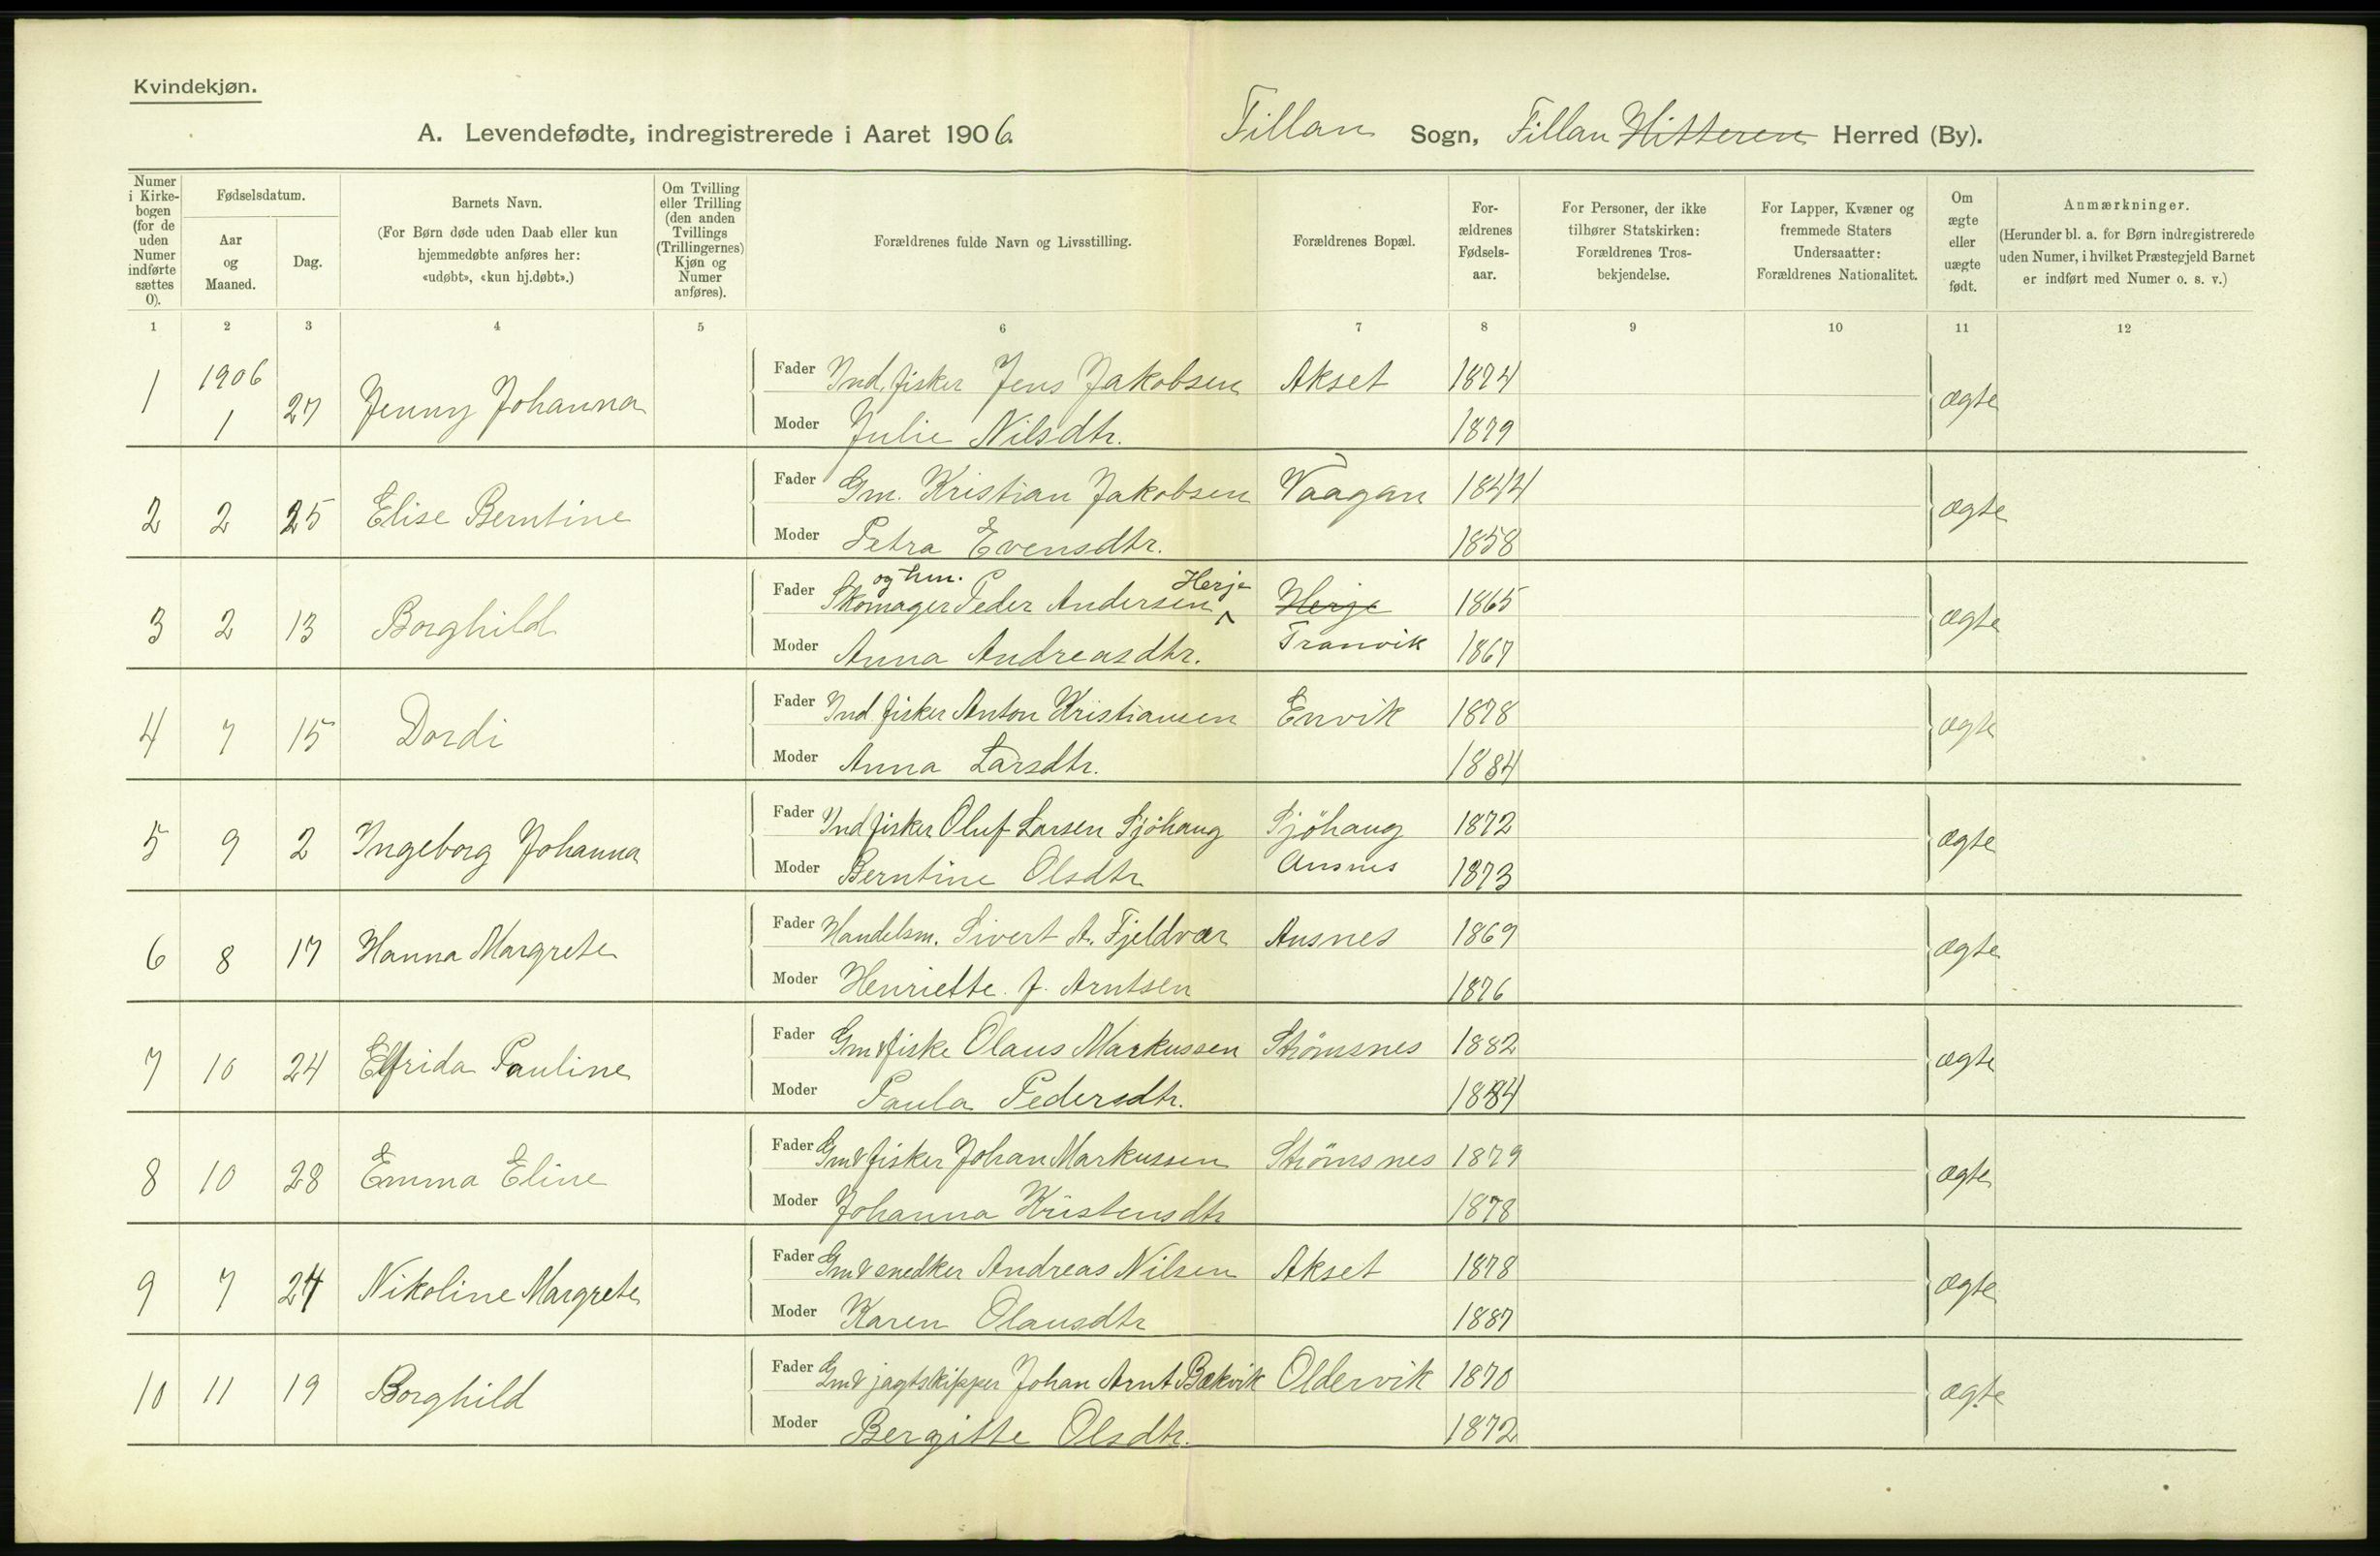 Kvindekjøn.
A. Levendefødte, indregistrerede i Aaret 1906.
Fillan Sogn, Fillan Hitteren Herred (By).
Numer i Kirkebogen (for de uden Numer indførte sættes 0).
Fødselsdatum.
Aar og Maaned.
Dag.
Barnets Navn.
(For Børn døde uden Daab eller kun hjemmedøbte anføres her: «udøbt», «kun hj.døbt».)
Om Tvilling eller Trilling (den anden Tvillings (Trillingernes) Kjøn og Numer anføres).
Forældrenes fulde Navn og Livsstilling.
Forældrenes Bopæl.
Forældrenes Fødselsaar.
For Personer, der ikke tilhører Statskirken: Forældrenes Trosbekjendelse.
For Lapper, Kvæner og fremmede Staters Undersaatter: Forældrenes Nationalitet.
Om ægte eller uægte født.
Anmærkninger.
(Herunder bl. a. for Børn indregistrerede uden Numer, i hvilket Præstegjeld Barnet er indført med Numer o. s. v.)
1 2 3 4 5 6 7 8 9 10 11 12
1 1906 1 27 Jenny Johanna Fader Ind. fisker Jens Jakobsen Akset 1874 ægte
Moder Julie Nilsdtr. 1879
2 2 25 Elise Berntine Fader Gm. Kristian Jakobsen Vaagan 1844 ægte
Moder Petra Evensdtr. 1858
3 2 13 Borghild Fader Skomager og hm. Peder Andersen Herje Herje 1865 ægte
Moder Anna Andreasdtr. Tranvik 1867
4 7 15 Dordi Fader Ind fisker Anton Kristiansen Envik 1878 ægte
Moder Anna Larsdtr. 1884
5 9 2 Ingeborg Johanna Fader Ind fisker Oluf Larsen Sjöhaug Sjöhaug 1872 ægte
Moder Berntine Olsdtr Ansnes 1873
6 8 17 Hanna Margrete Fader Handelsm. Sivert A. Fjeldvær Ansnes 1869 ægte
Moder Henriette J. Arntsen 1876
7 10 24 Elfrida Pauline Fader Gm & fiske Olaus Markussen Strömsnes 1882 ægte
Moder Paula Pedersdtr. 1884
8 10 28 Emma Eline Fader Gm & fisker Johan Markussen Strömsnes 1879 ægte
Moder Johanna Kristensdtr 1878
9 7 24 Nikoline Margrete Fader Gm & snedker Andreas Nilsen Akset 1878 ægte
Moder Karen Olausdtr 1887
10 11 19 Borghild Fader Gm & jagtskipper Johan Arnt Bækvik Oldervik 1870 ægte
Moder Bergitte Olsdtr. 1872